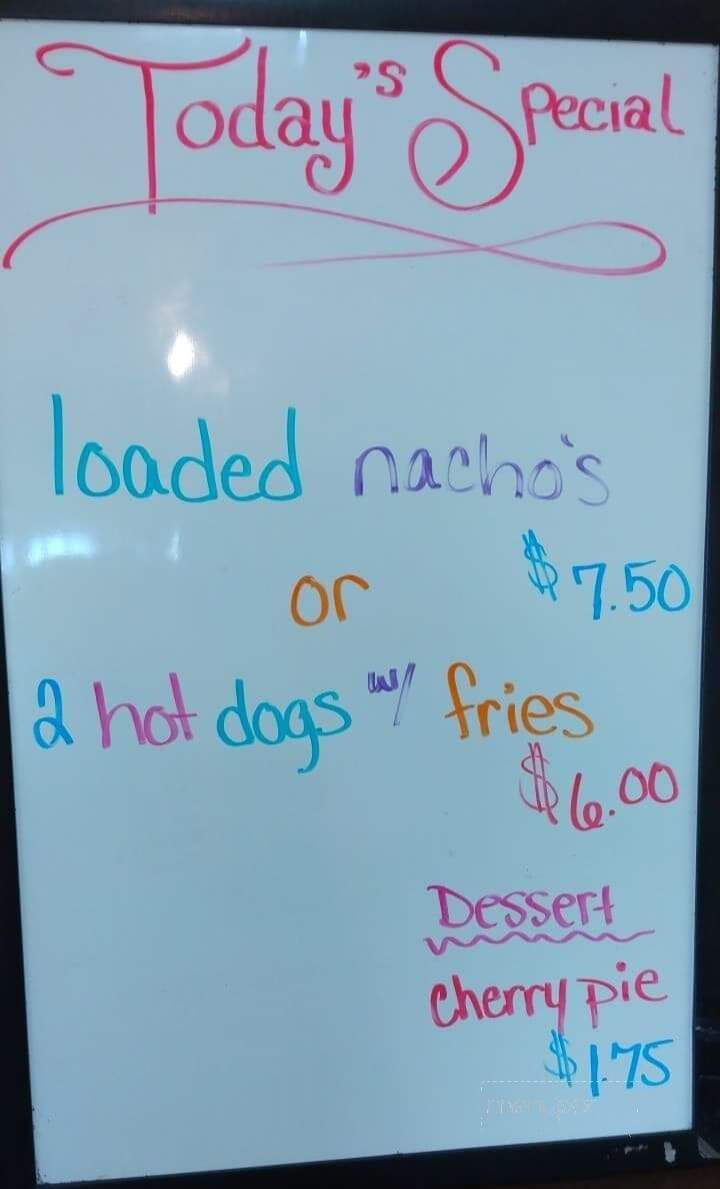 Today's Special
loaded nacho's
or $7.50
2 hot dogs w/ fries
$6.00
Dessert
Cherry pie
$1.75
menupix